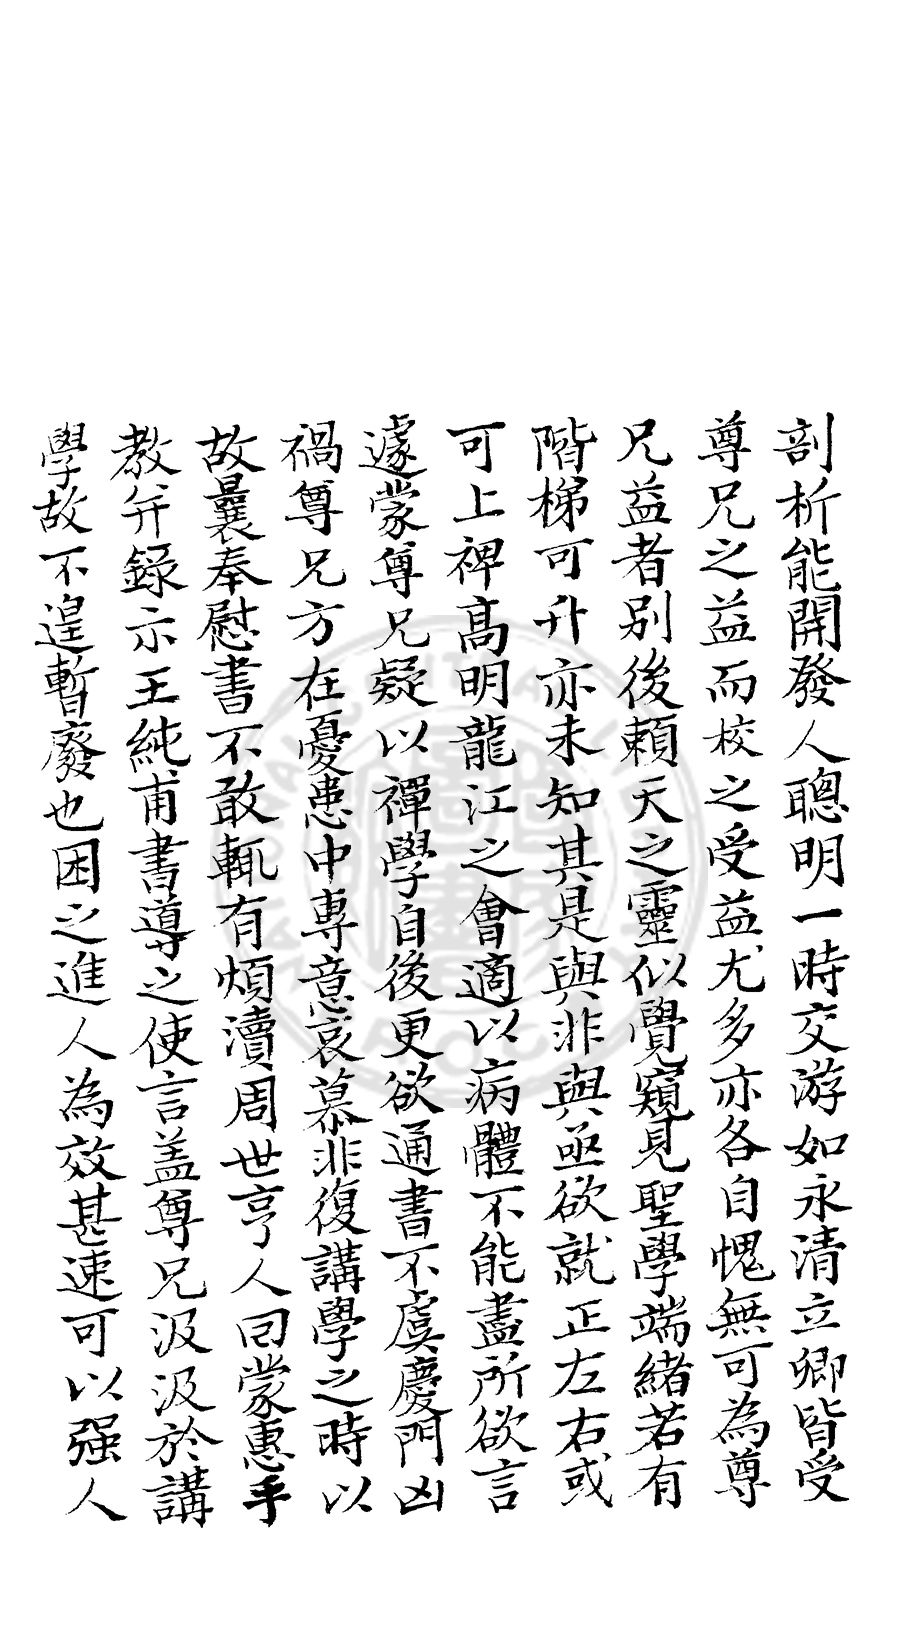 剖析能開發人聰明一時交游如永清立卿皆受
尊兄之益而校之受益尤多亦各自愧無可為尊
兄益者別後賴天之靈似覺窺見聖學端緒若有
階梯可升亦未知其是與非與亟欲就正左右或
可上裨高明龍江之會適以病體不能盡所欲言
遽蒙尊兄疑以禪學自後更欲通書不虞慶門凶
禍尊兄方在憂患中專意哀慕非復講學之時以
故曩奉慰書不敢輒有煩瀆周世亨人回蒙惠手
教并錄示王純甫書導之使言盖尊兄汲汲於講
學故不遑暫廢也困之進人為效甚速可以强人